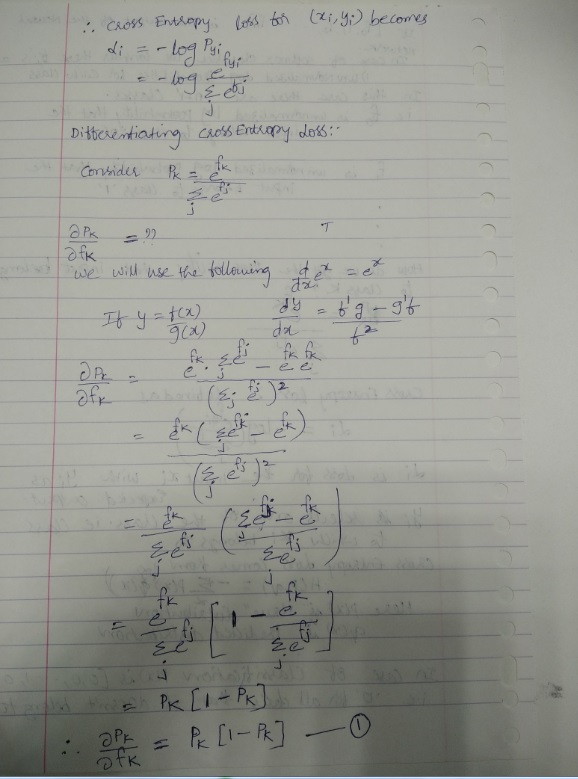 ∴ Cross Entropy loss for (xi, yi) becomes
Li = -log Pyi
= -log e^fyi / Σj e^fj
Differentiating CrossEntropy Loss:-
Consider Pk = e^fk / Σj e^fj
∂Pk/∂fk = ??
we will use the following d/dx e^x = e^x
If y = f(x)/g(x) dy/dx = (f'g - g'f)/f²
∂Pk/∂fk = (e^fk · Σj e^fj - e^fk e^fk) / (Σj e^fj)²
= e^fk (Σj e^fj - e^fk) / (Σj e^fj)²
= e^fk / Σj e^fj ((Σj e^fj - e^fk) / Σj e^fj)
= e^fk / Σj e^fj [1 - e^fk / Σj e^fj]
= Pk [1 - Pk]
∴ ∂Pk/∂fk = Pk [1 - Pk] — ①